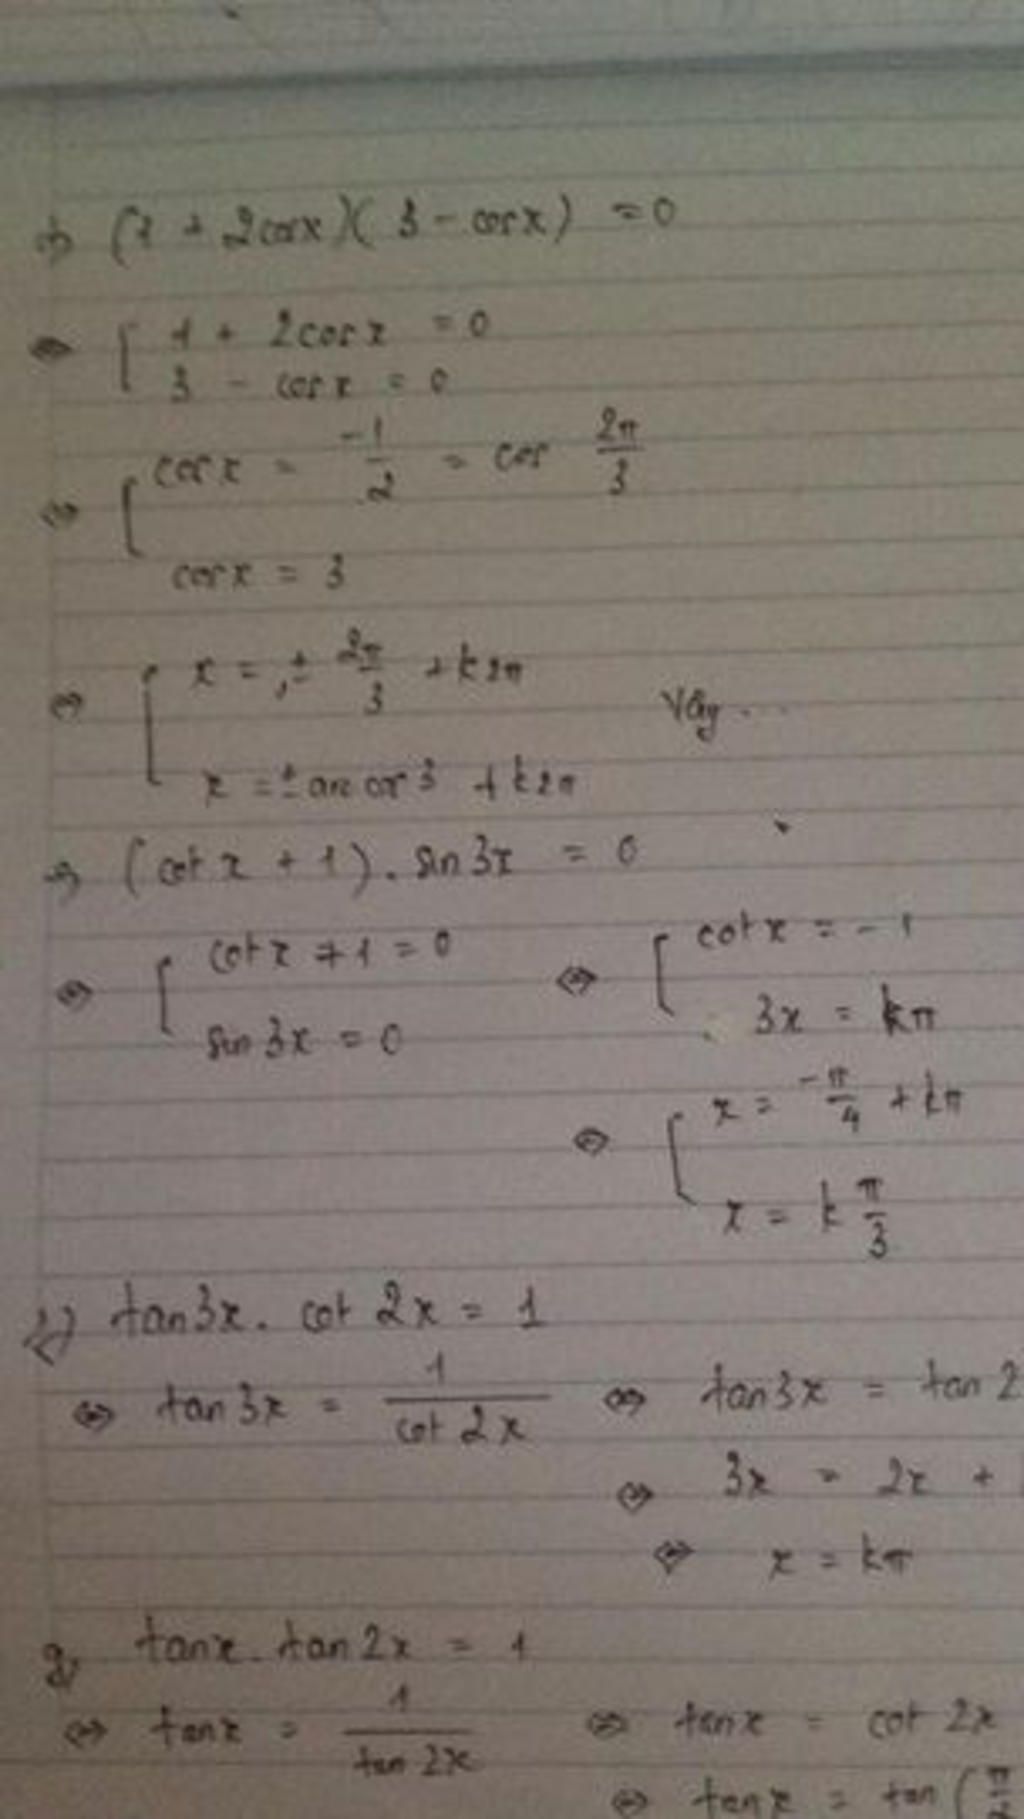 (1 + 2cosx)(3 - cosx) = 0
⇔ [ 1 + 2cosx = 0
3 - cosx = 0
⇔ [ cosx = -1/2 = cos 2π/3
cosx = 3
⇔ [ x = ± 2π/3 + k2π
Vậy ...
x = ± arc cos 3 + k2π
(cot x + 1) . sin3x = 0
⇔ [ cotx + 1 = 0 ⇔ [ cotx = -1
sin3x = 0 3x = kπ
⇔ [ x = -π/4 + kπ
x = k π/3
tan3x . cot 2x = 1
⇔ tan3x = 1/cot 2x ⇔ tan3x = tan 2
⇔ 3x = 2x +
⇔ x = kπ
g, tanx . tan2x = 1
⇔ tanx = 1/tan 2x ⇔ tanx = cot 2x
⇔ tanx = tan (π/2